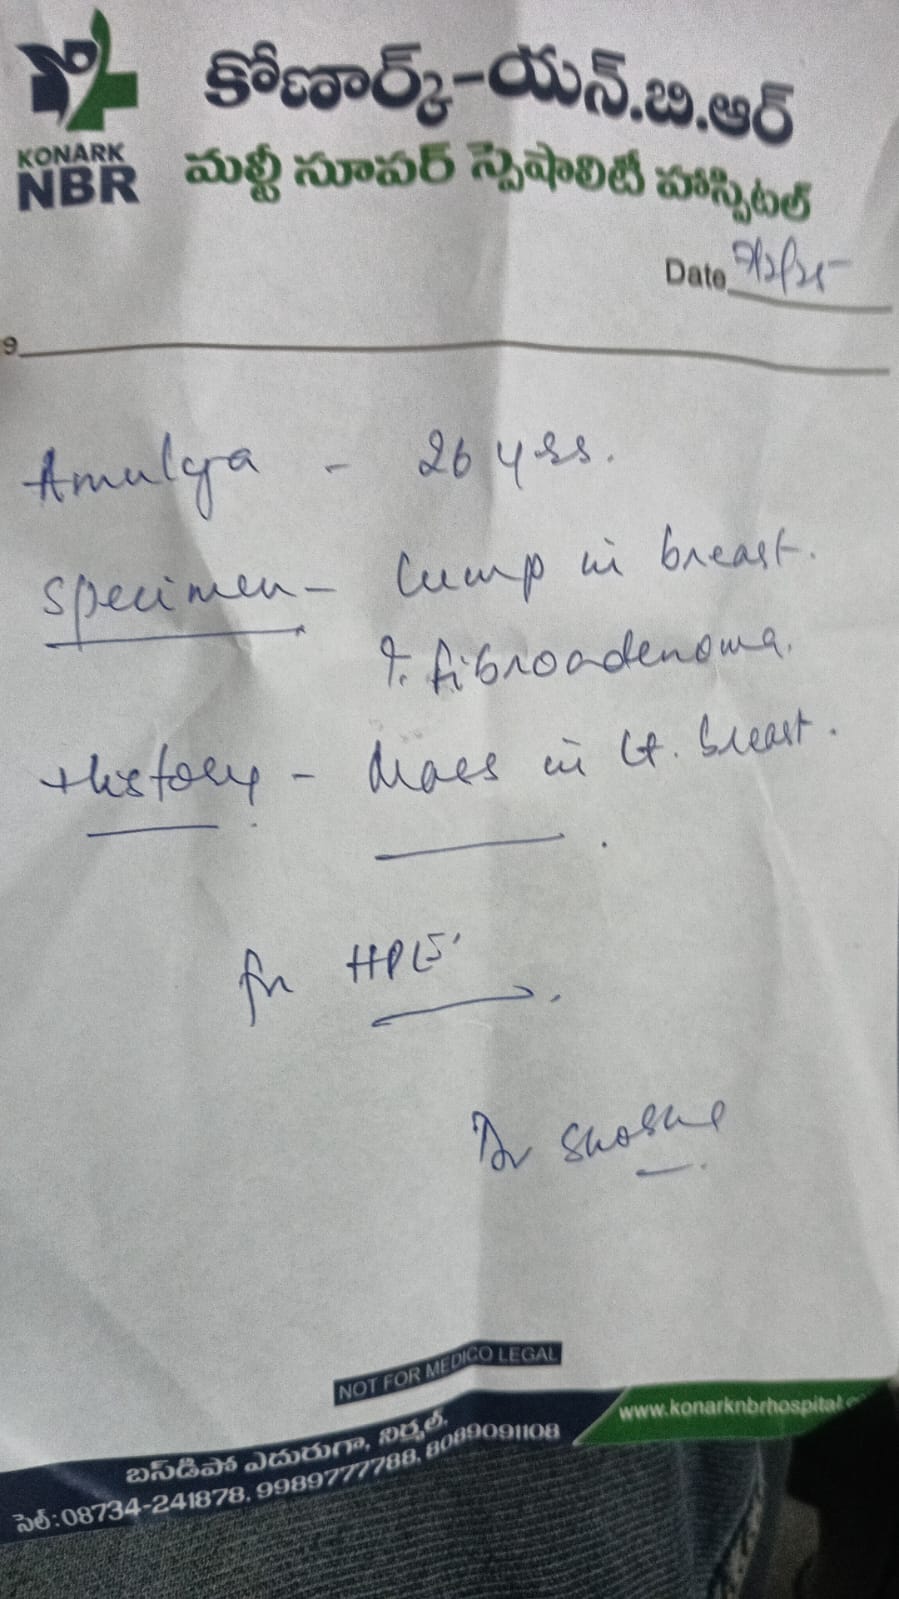 KONARK
NBR
కోణార్క్-యన్.బి.ఆర్
మల్టీ సూపర్ స్పెషాలిటీ హాస్పిటల్
Date
9
Amulya - 26 yrs.
Specimen - lump in breast.
?. fibroadenoma.
History - Mass in Lt. breast.
for HPE
Dr
NOT FOR MEDICO LEGAL
www.konarknbrhospital.c
బస్‌డిపో ఎదురుగా, నిర్మల్.
సెల్:08734-241878, 9989777788, 8089091108